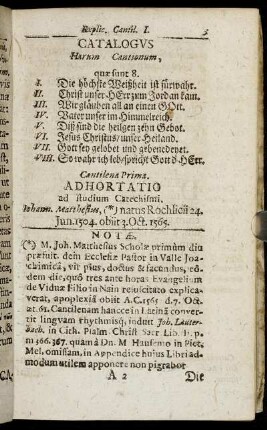 Explic. Cantil. I. 3
CATALOGVS
Harum Cantionum,
quæ sunt 8.
I. Die höchste Weißheit ist fürwahr.
II. Christ unser HErr zum Jordan kam.
III. Wir glauben all an einen GOtt.
IV. Vater unser im Himmelreich.
V. Diß sind die heilgen zehn Gebot.
VI. Jesus Christus/ unser Heiland.
VII. Gott sey gelobet und gebenedeyet.
VIII. So wahr ich leb/ spricht Gott d HErr.
Cantilena Prima.
ADHORTATIO
ad studium Catechismi.
Johann. Matthesius, (*) natus Rochlicii 24.
Jun. 1504. obiit 3. Oct. 1565.
NOTÆ.
(*) M. Joh. Matthesius Scholæ primùm diu
præfuit. dein Ecclesiæ Pastor in Valle Joa-
chimicâ, vir pius, doctus & facundus, eô-
dem die, quô tres ante horas Evangelium
de Viduæ Filio in Nain resuscitato explica-
verat, apoplexiâ obiit A.C. 1565 d. 7. Oct.
æt. 61. Cantilenam hancce in Latinâ conver-
tit lingvam rhythmisq; induit Joh. Lauter-
bach. in Cith. Psalm. Christ Sacr Lib. II. p.
m 366. 367. quam à Dn. M Hausemo in Piet.
Mel. omissam, in Appendice hujus Libri ad-
modum utilem apponere non pigrabor
A 2 Die